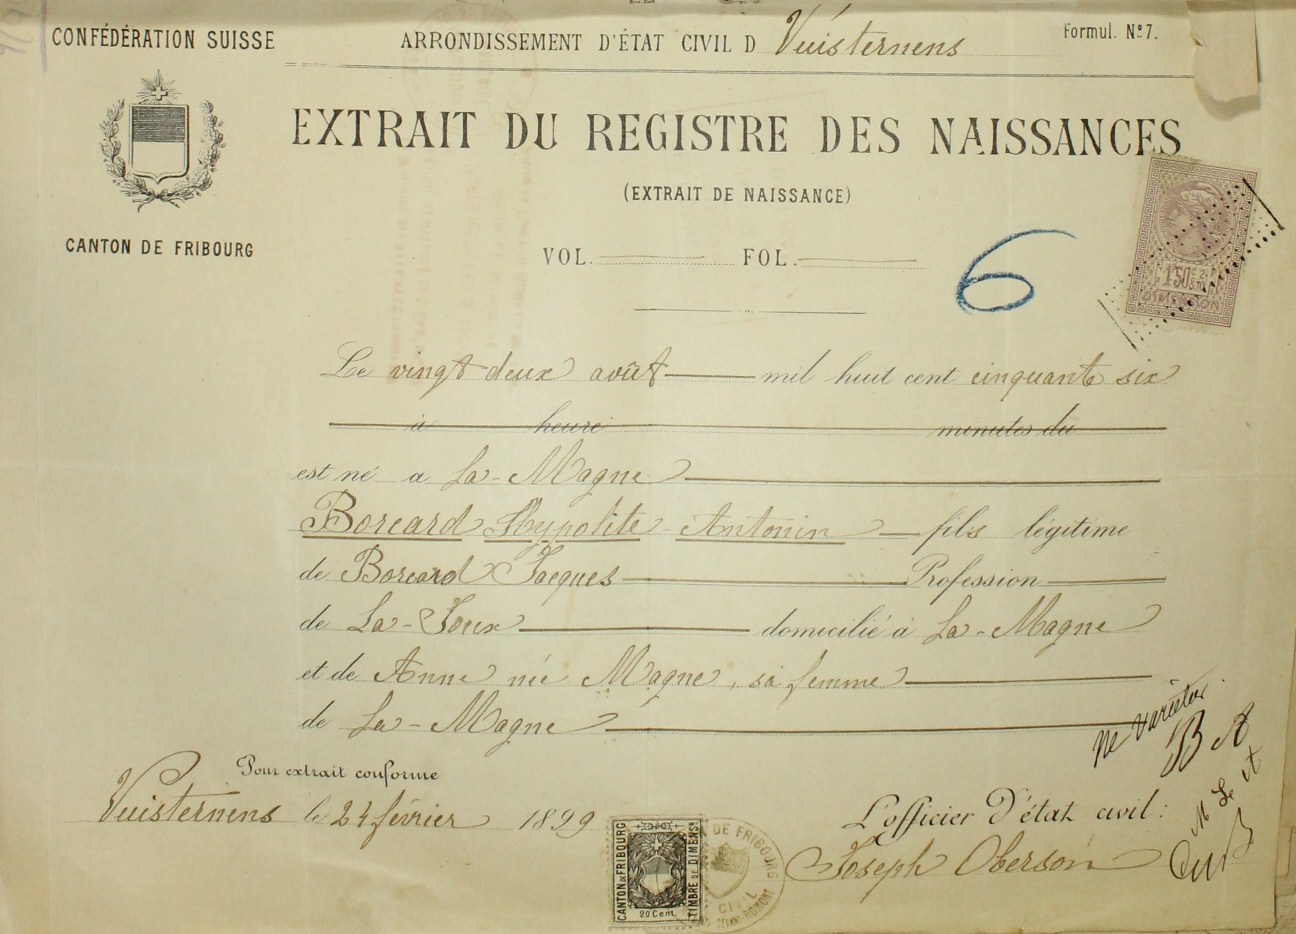 CONFÉDÉRATION SUISSE
ARRONDISSEMENT D'ÉTAT CIVIL D Vuisternens
Formul. Nº 7.
EXTRAIT DU REGISTRE DES NAISSANCES
(EXTRAIT DE NAISSANCE)
CANTON DE FRIBOURG
VOL. FOL.
6
150
DIMENSION
Le vingt-deux août mil huit cent cinquante six
à heure minutes du
est né à La-Magne
Borcard Hypolite Antonin fils légitime
de Borcard Jacques Profession
de La-Joux domicilié à La-Magne
et de Anne née Magne, sa femme
de La-Magne
Ne varietur
B A
M Le et
Pour extrait conforme
Vuisternens le 24 février 1899
L'officier d'état civil:
Joseph Oberson
CANTON DE FRIBOURG
TIMBRE DE DIMENSN
20 Cent.
DE FRIBOURG
CIVIL